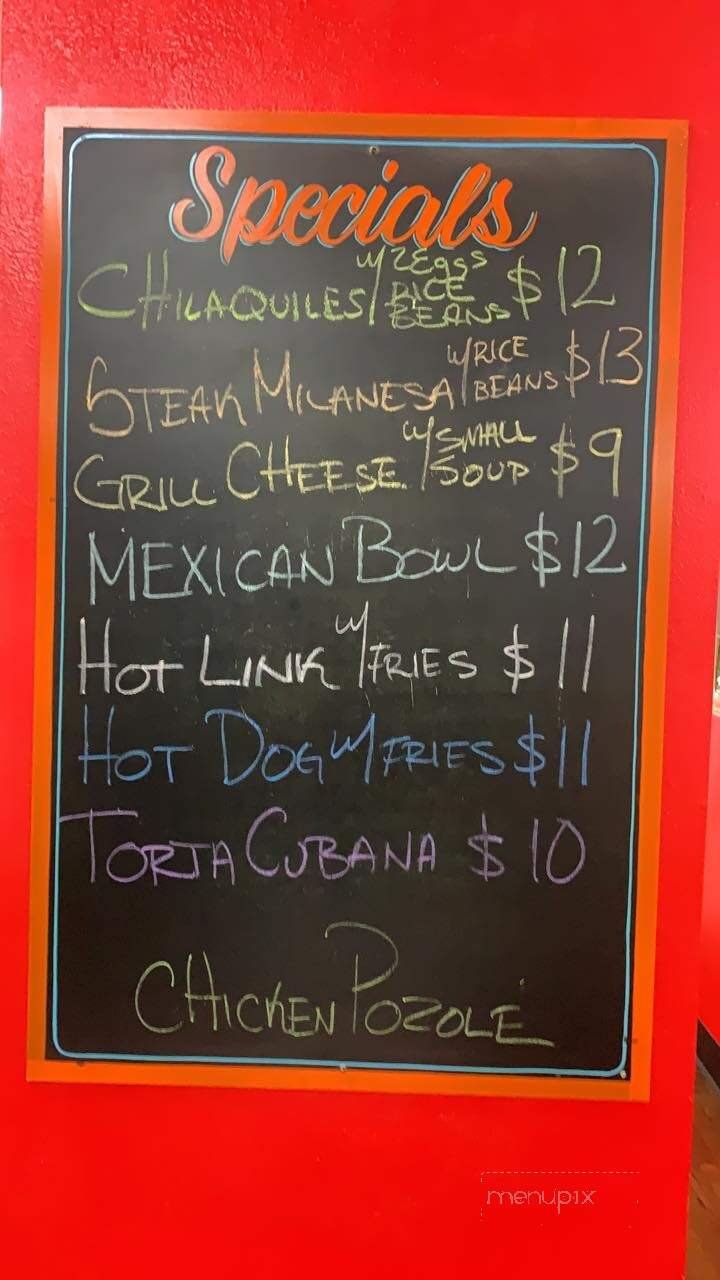 Specials
CHILAQUILES w/ 2 EGGS RICE BEANS $12
STEAK MILANESA w/ RICE BEANS $13
GRILL CHEESE w/ SMALL SOUP $9
MEXICAN BOWL $12
HOT LINK w/ FRIES $11
HOT DOG w/ FRIES $11
TORTA CUBANA $10
CHICKEN POZOLE
menupix